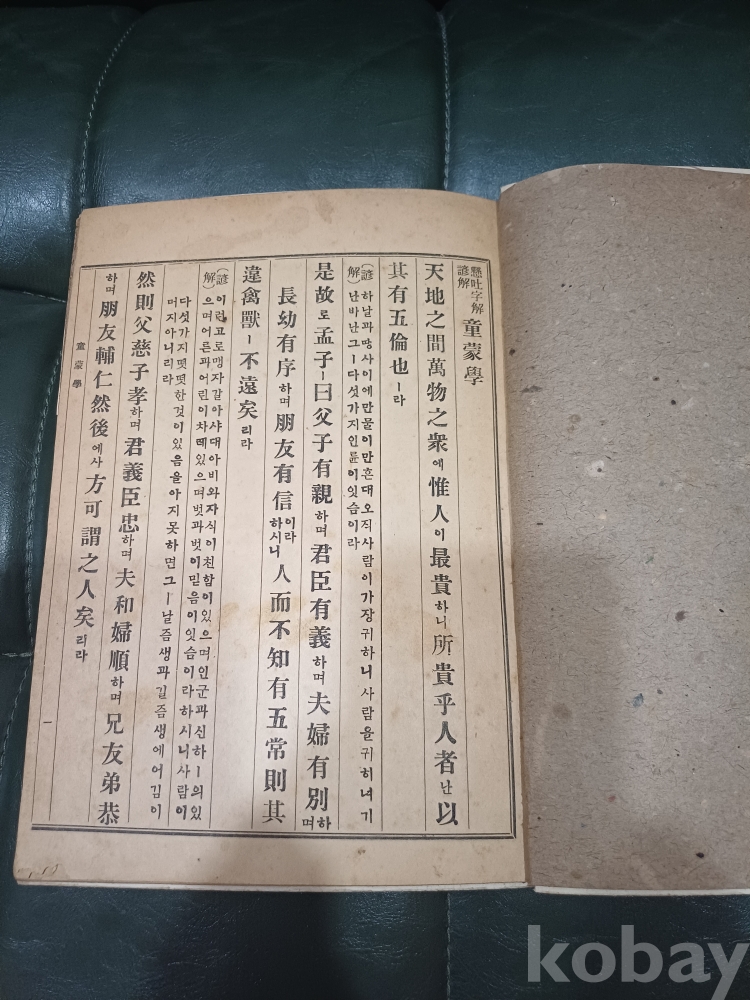 懸吐字解
諺解 童蒙學
天地之間萬物之衆에惟人이最貴하니所貴乎人者난以
其有五倫也ㅣ라
(諺解)하날과땅사이에만물이만흔대오직사람이가장귀하니사람을귀히녀기
난바난그ㅣ다섯가지인륜이잇슴이라
是故로孟子ㅣ曰父子有親하며君臣有義하며夫婦有別하며
長幼有序하며朋友有信이라하시니人而不知有五常則其
違禽獸ㅣ不遠矣리라
(諺解)이런고로맹자갈아샤대아비와자식이친함이있으며인군과신하ㅣ의있
으며어른과어린이차례있으며벗과벗이믿음이잇슴이라하시니사람이
다섯가지떳떳한것이있음을아지못하면그ㅣ날즘생과길즘생에어김이
머지아니리라
然則父慈子孝하며君義臣忠하며夫和婦順하며兄友弟恭
하며朋友輔仁然後에사方可謂之人矣리라
童蒙學
一
kobay